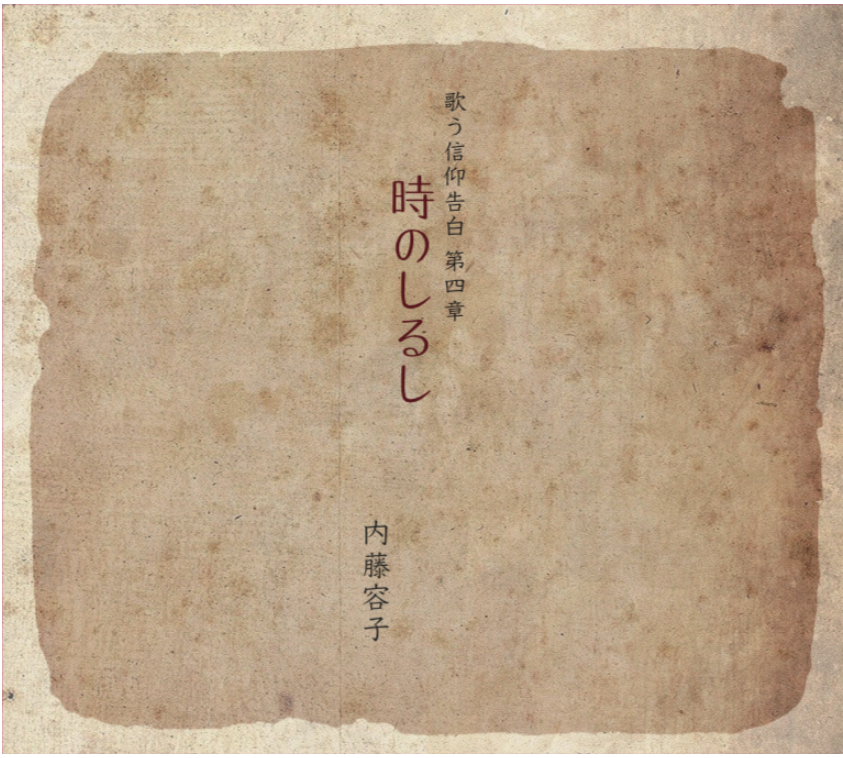 歌う信仰告白 第四章
時のしるし
内藤容子